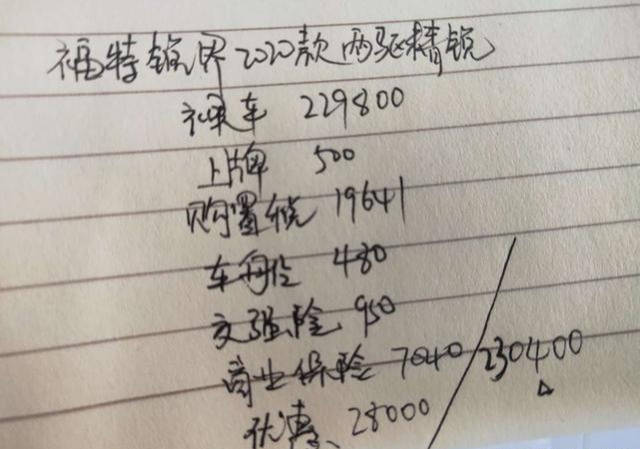 福特锐界 2020款两驱精锐
裸车 229800
上牌 500
购置税 19641
车船 480
交强险 950
商业保险 7040 / 230400
优惠 28000